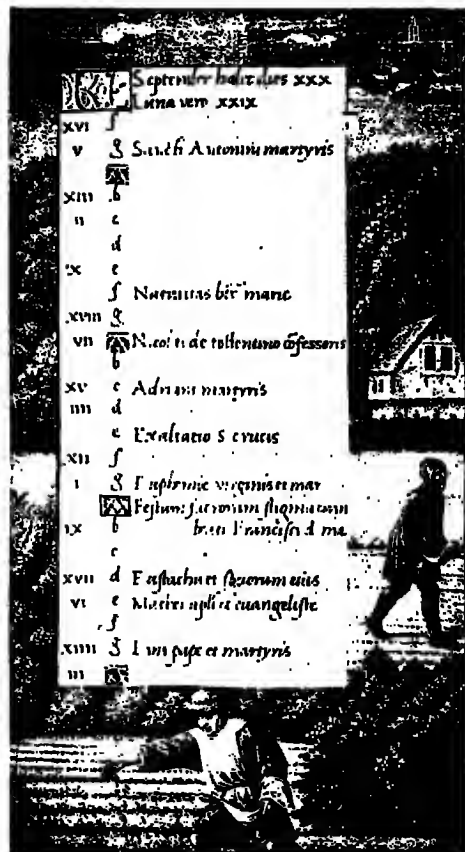 KL September habet dies xxx
Luna vero xxix
xvi f
v g Sancti Antonini martyris
A
xiii b
ii c
d
x e
f Natiuitas bte marie
xviii g
vii A Nicolai de tollentino cõfessoris
b
xv c Adriani martyris
iiii d
e Exaltatio S crucis
xii f
i g Eufemie virginis et mar
A Festum sacrorum stigmatum
ix b beati Francisci d ma
c
xvii d Eustachii et sociorum eius
vi e Mathei apli et euangeliste
f
xiiii g Lini pape et martyris
iii A